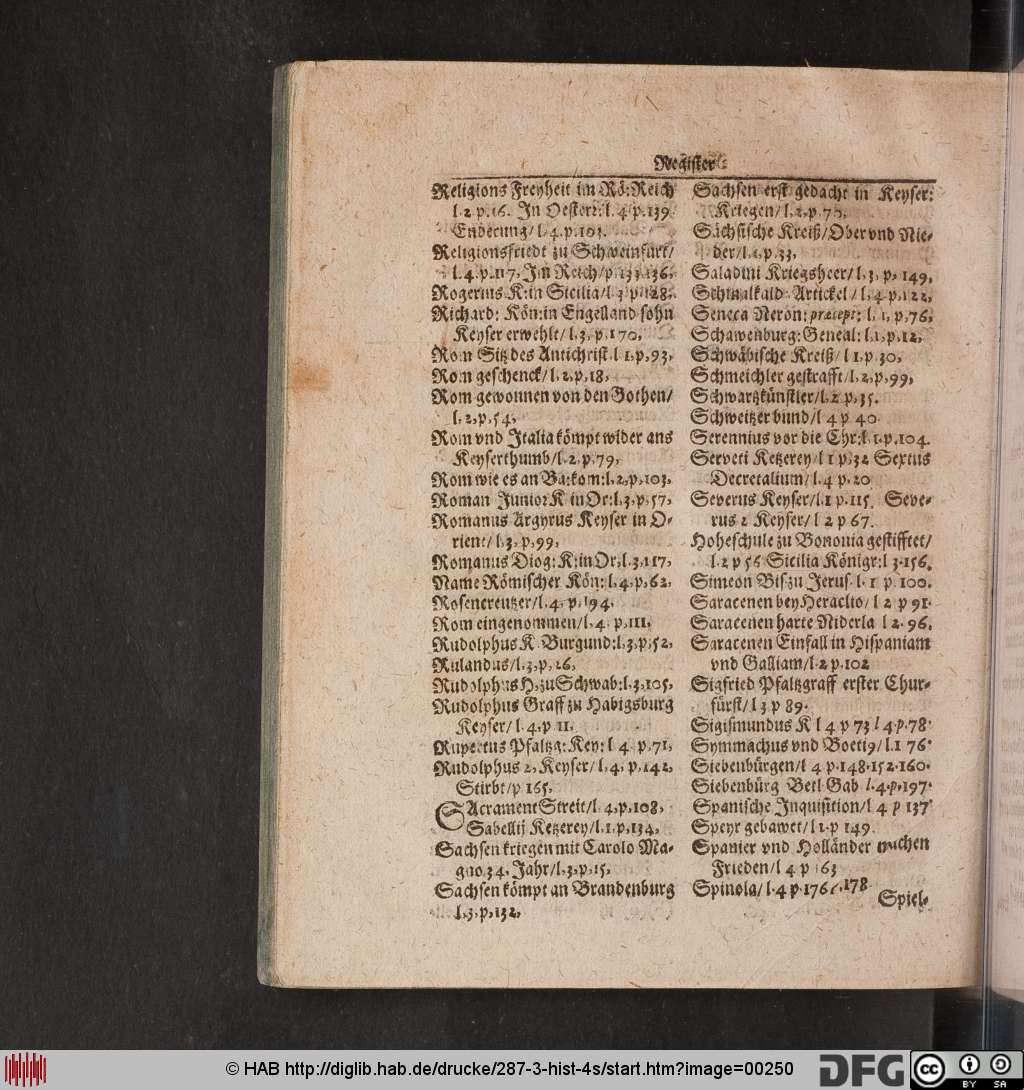 Register
Religions Freyheit im Rö: Reich
l. 2 p. 16. In Oesterr: l. 4 p. 139.
Enderung / l. 4. p. 103.
Religionsfriedt zu Schweinfurt /
l. 4. p. 117, Im Reich / p. 133. 136.
Rogerius K: in Sicilia / l. 3 p. 128.
Richard: Kön: in Engelland sohn
Keyser erwehlt / l. 3, p. 170,
Rom Sitz des Antichrist. l 1, p, 93,
Rom geschenck / l, 2, p, 18,
Rom gewonnen von den Gothen /
l, 2, p, 54,
Rom vnd Italia kömpt wider ans
Keyserthumb / l. 2. p. 79,
Rom wie es an Ba: kom: l. 2, p, 103,
Roman Junior K in Or: l. 3, p, 57,
Romanus Argyrus Keyser in O-
rient / l. 3, p, 99,
Romanus Diog: K: in Or, l. 3, 117,
Name Römischer Kön: l, 4, p, 62,
Rosencreutzer / l. 4, p, 194,
Rom eingenommen / l, 4, p, 111,
Rudolphus K Burgund: l, 3, p, 52,
Rulandus / l, 3, p, 26,
Rudolphus H, zu Schwab: l. 3, 105,
Rudolphus Graff zu Habigsburg
Keyser / l. 4. p 11,
Rupertus Pfaltzg: Key: l 4 p, 71,
Rudolphus 2, Keyser / l, 4, p, 142,
Stirbt / p 165,
SAcrament Streit / l. 4, p, 108,
Sabellij Ketzerey / l. 1, p, 134,
Sachsen kriegen mit Carolo Ma-
gno 34, Jahr / l, 3, p, 15,
Sachsen kömpt an Brandenburg
l, 3, p, 132,
Sachsen erst gedacht in Keyser:
Kriegen / l. 2, p. 70,
Sächsische Kreiß / Ober vnd Nie-
der / l. 1, p. 33,
Saladini Kriegsheer / l. 3, p, 149,
Schmalkald Artickel / l, 4 p, 122,
Seneca Neron: præcept: l. 1, p, 76,
Schawenburg: Geneal: l. 1, p, 12,
Schwäbische Kreiß / l 1, p. 30,
Schmeichler gestrafft / l, 2, p, 99,
Schwartzkünstler / l, 2 p, 35.
Schweitzer bund / l 4 p 40
Serennius vor die Chr: l. 1. p, 104.
Serveti Ketzerey / l 1 p, 32 Sextus
Decretalium / l. 4 p. 20
Severus Keyser / l. 1 p. 115. Seve-
rus 2 Keyser / l 2 p 67.
Hoheschule zu Bononia gestifftet /
l. 2 p 56 Sicilia Königr: l 3. 156.
Simeon Bis: zu Jerus. l. 1 p 100.
Saracenen bey Heraclio / l 2 p 91.
Saracenen harte Niderla l 2. 96.
Saracenen Einfall in Hispaniam
vnd Galliam / l. 2 p. 102
Sigfried Pfaltzgraff erster Chur-
fürst / l 3 p 89.
Sigismundus K l 4 p 73 l 4. p. 78.
Symmachus vnd Boetig / l. 1 76.
Siebenbürgen / l 4 p. 148. 152. 160.
Siebenbürg Betl Gab l. 4. p. 197.
Spanische Inquisition / l 4 p 137
Speyr gebawet / l 1. p 149.
Spanier vnd Holländer machen
Frieden / l 4 p 163
Spinola / l. 4 p. 1766. 178
Spiel-
© HAB http://diglib.hab.de/drucke/287-3-hist-4s/start.htm?image=00250
DFG
cc
BY SA